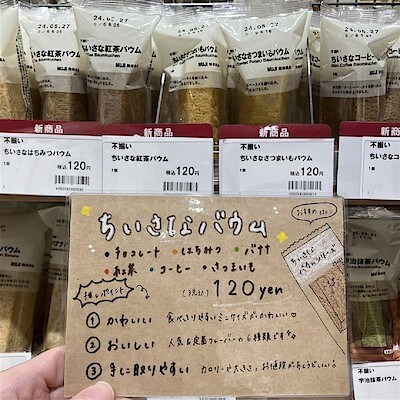 24.05.27
ちいさな紅茶バウム
24.05.27
ちいさなさつまいもバウム
Sweet Potato Baumkuchen
24.05.27
ちいさなコーヒー
Mini Coffee Baumkuchen
新商品
新商品
新商品
不揃い
ちいさなはちみつバウム
1個
税込120円
不揃い
ちいさな紅茶バウム
1個
税込120円
不揃い
ちいさなさつまいもバウム
1個
税込120円
不揃い
ちいさなコ
1個
ちいさなバウム
おすすめ
・チョコレート ・はちみつ ・バナナ
・紅茶 ・コーヒー ・さつまいも
推しポイント
(税込) 120yen
① かわいい 食べきりやすいミニサイズがかわいい♡
② おいしい 人気&定番フレーバーの6種類です
③ 手に取りやすい カロリーや大きさ、お値段がちょうどいい
宇治抹茶バウム
不揃い
宇治抹茶バウム